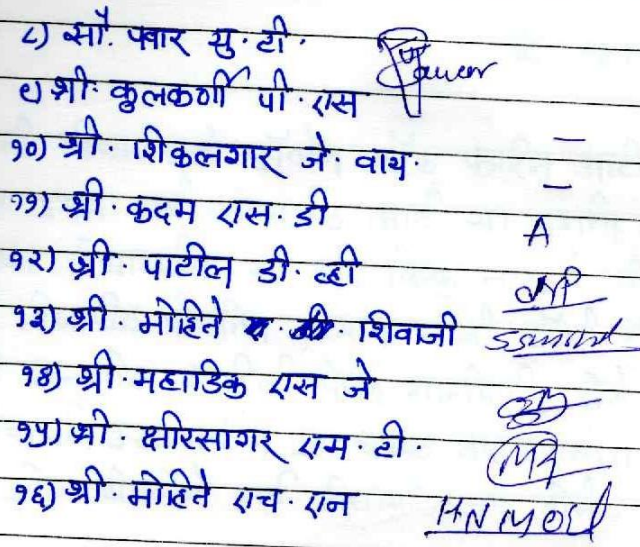 ८) सौ. पवार सु. टी. Pawar
९ श्री. कुलकर्णी पी. एस —
१०) श्री. शिकलगार जे. वाय. —
११) श्री. कदम एस. डी A
१२) श्री. पाटील डी. व्ही
१३) श्री. मोहिते शिवाजी
१४) श्री. महाडिक एस जे
१५) श्री. क्षीरसागर एम. टी.
१६) श्री. मोहिते एच. एन HN MOH